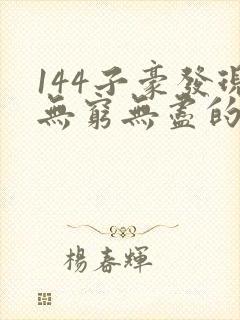 144子豪發現
無窮無盡的
楊春輝